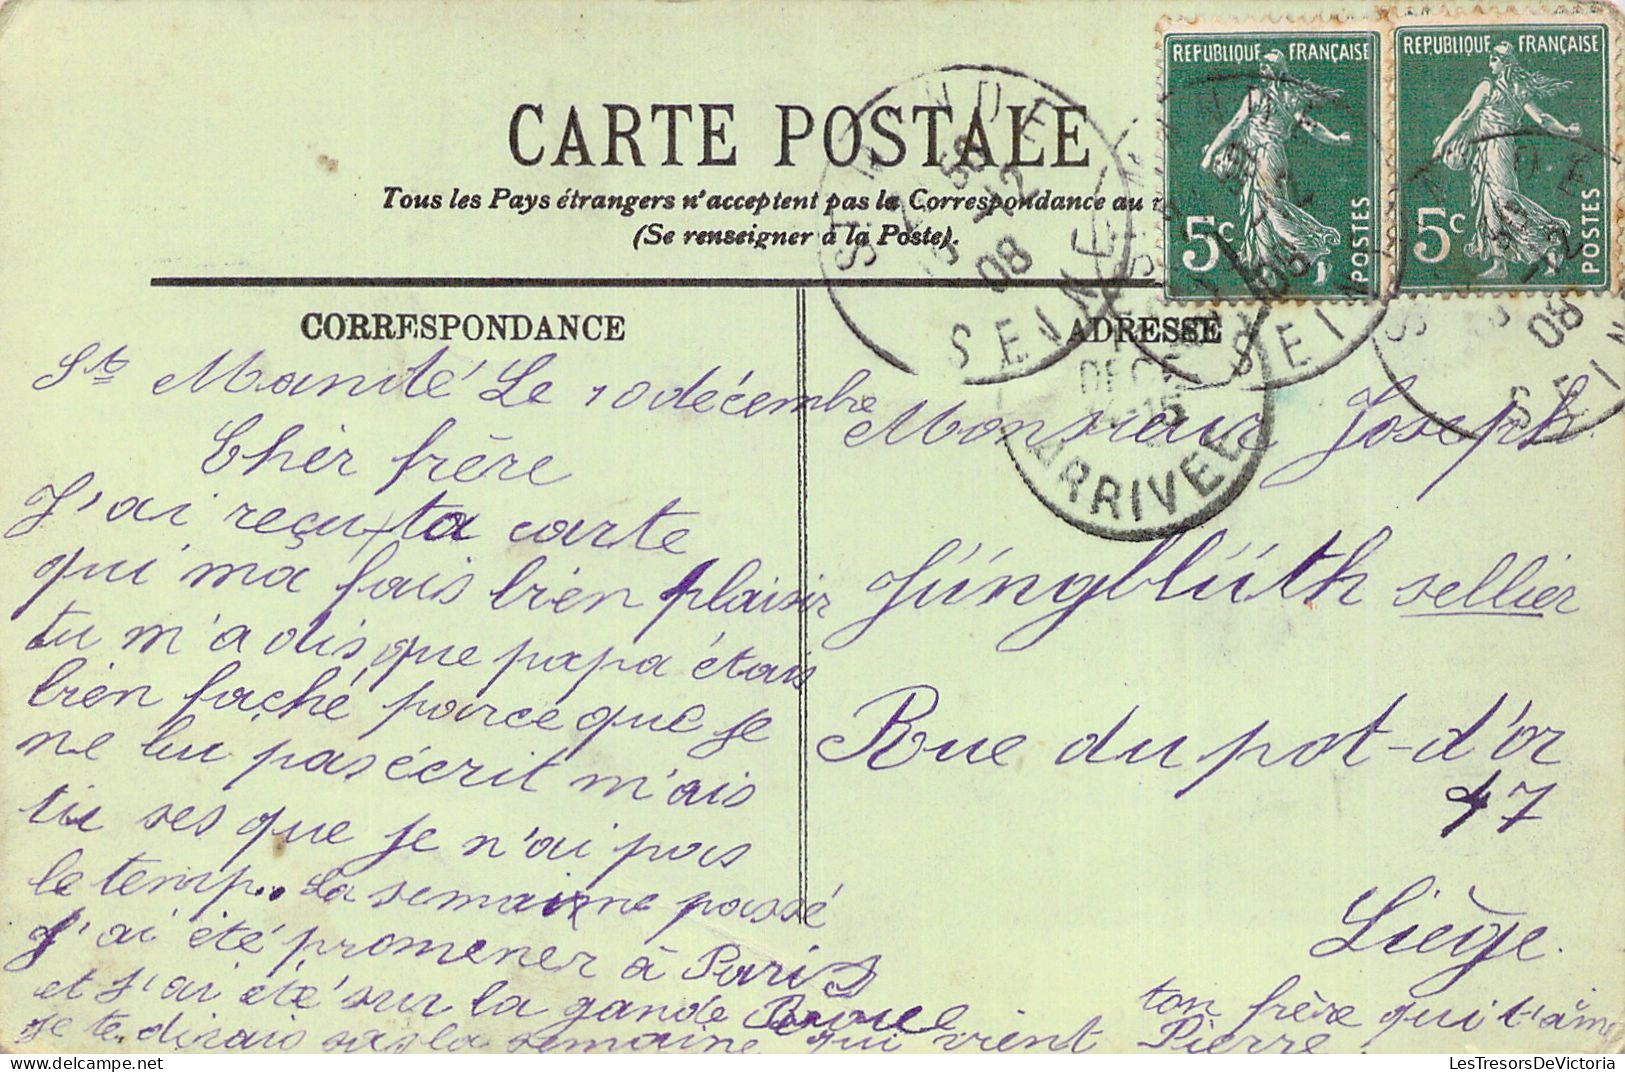 REPUBLIQUE FRANÇAISE
5c
POSTES
REPUBLIQUE FRANÇAISE
5c
POSTES
CARTE POSTALE
Tous les Pays étrangers n'acceptent pas la Correspondance au
(Se renseigner à la Poste).
ST MANDE
10 -12
08
SEINE
ARRIVEE
CORRESPONDANCE
Ste Mandé Le 10 décembre
Cher frère
J'ai reçu ta carte
qui ma fais bien plaisir
tu m'a dis que papa étais
bien faché parce que je
ne lui pas écrit m'ais
tu ses que je n'ai pas
le temp.. La semaine passé
J'ai été promener à Paris
et J'ai été sur la gande Roue
je te dirais sas la semaine qui vient
ADRESSE
Monsieur Joseph
Jüngblüth sellier
Rue du pot-d'or
47
Liège.
ton frère qui t'aime
Pierre.
LesTresorsDeVictoria